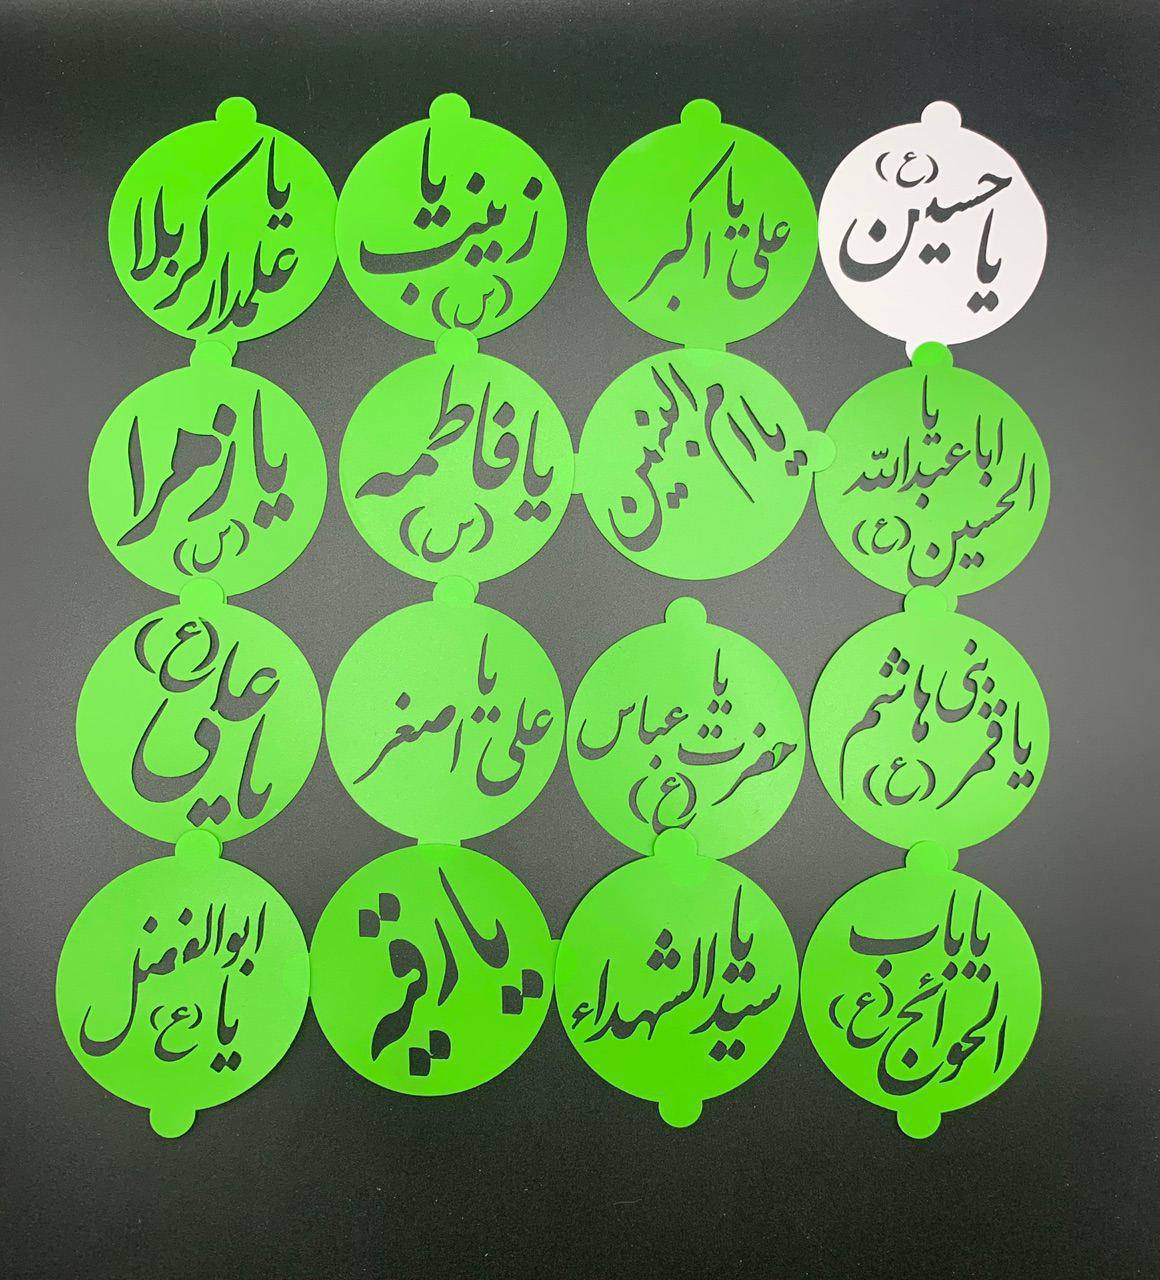 یا حسین (ع)
یا علی اکبر
یا زینب (س)
یا علمدار کربلا
یا اباعبدالله الحسین (ع)
یا ام البنین
یا فاطمه (س)
یا زهرا (س)
یا قمر بنی هاشم (ع)
یا حضرت عباس (ع)
یا علی اصغر
یا علی (ع)
یا باب الحوائج (ع)
یا سید الشهداء
یا رقیه
یا ابوالفضل (ع)